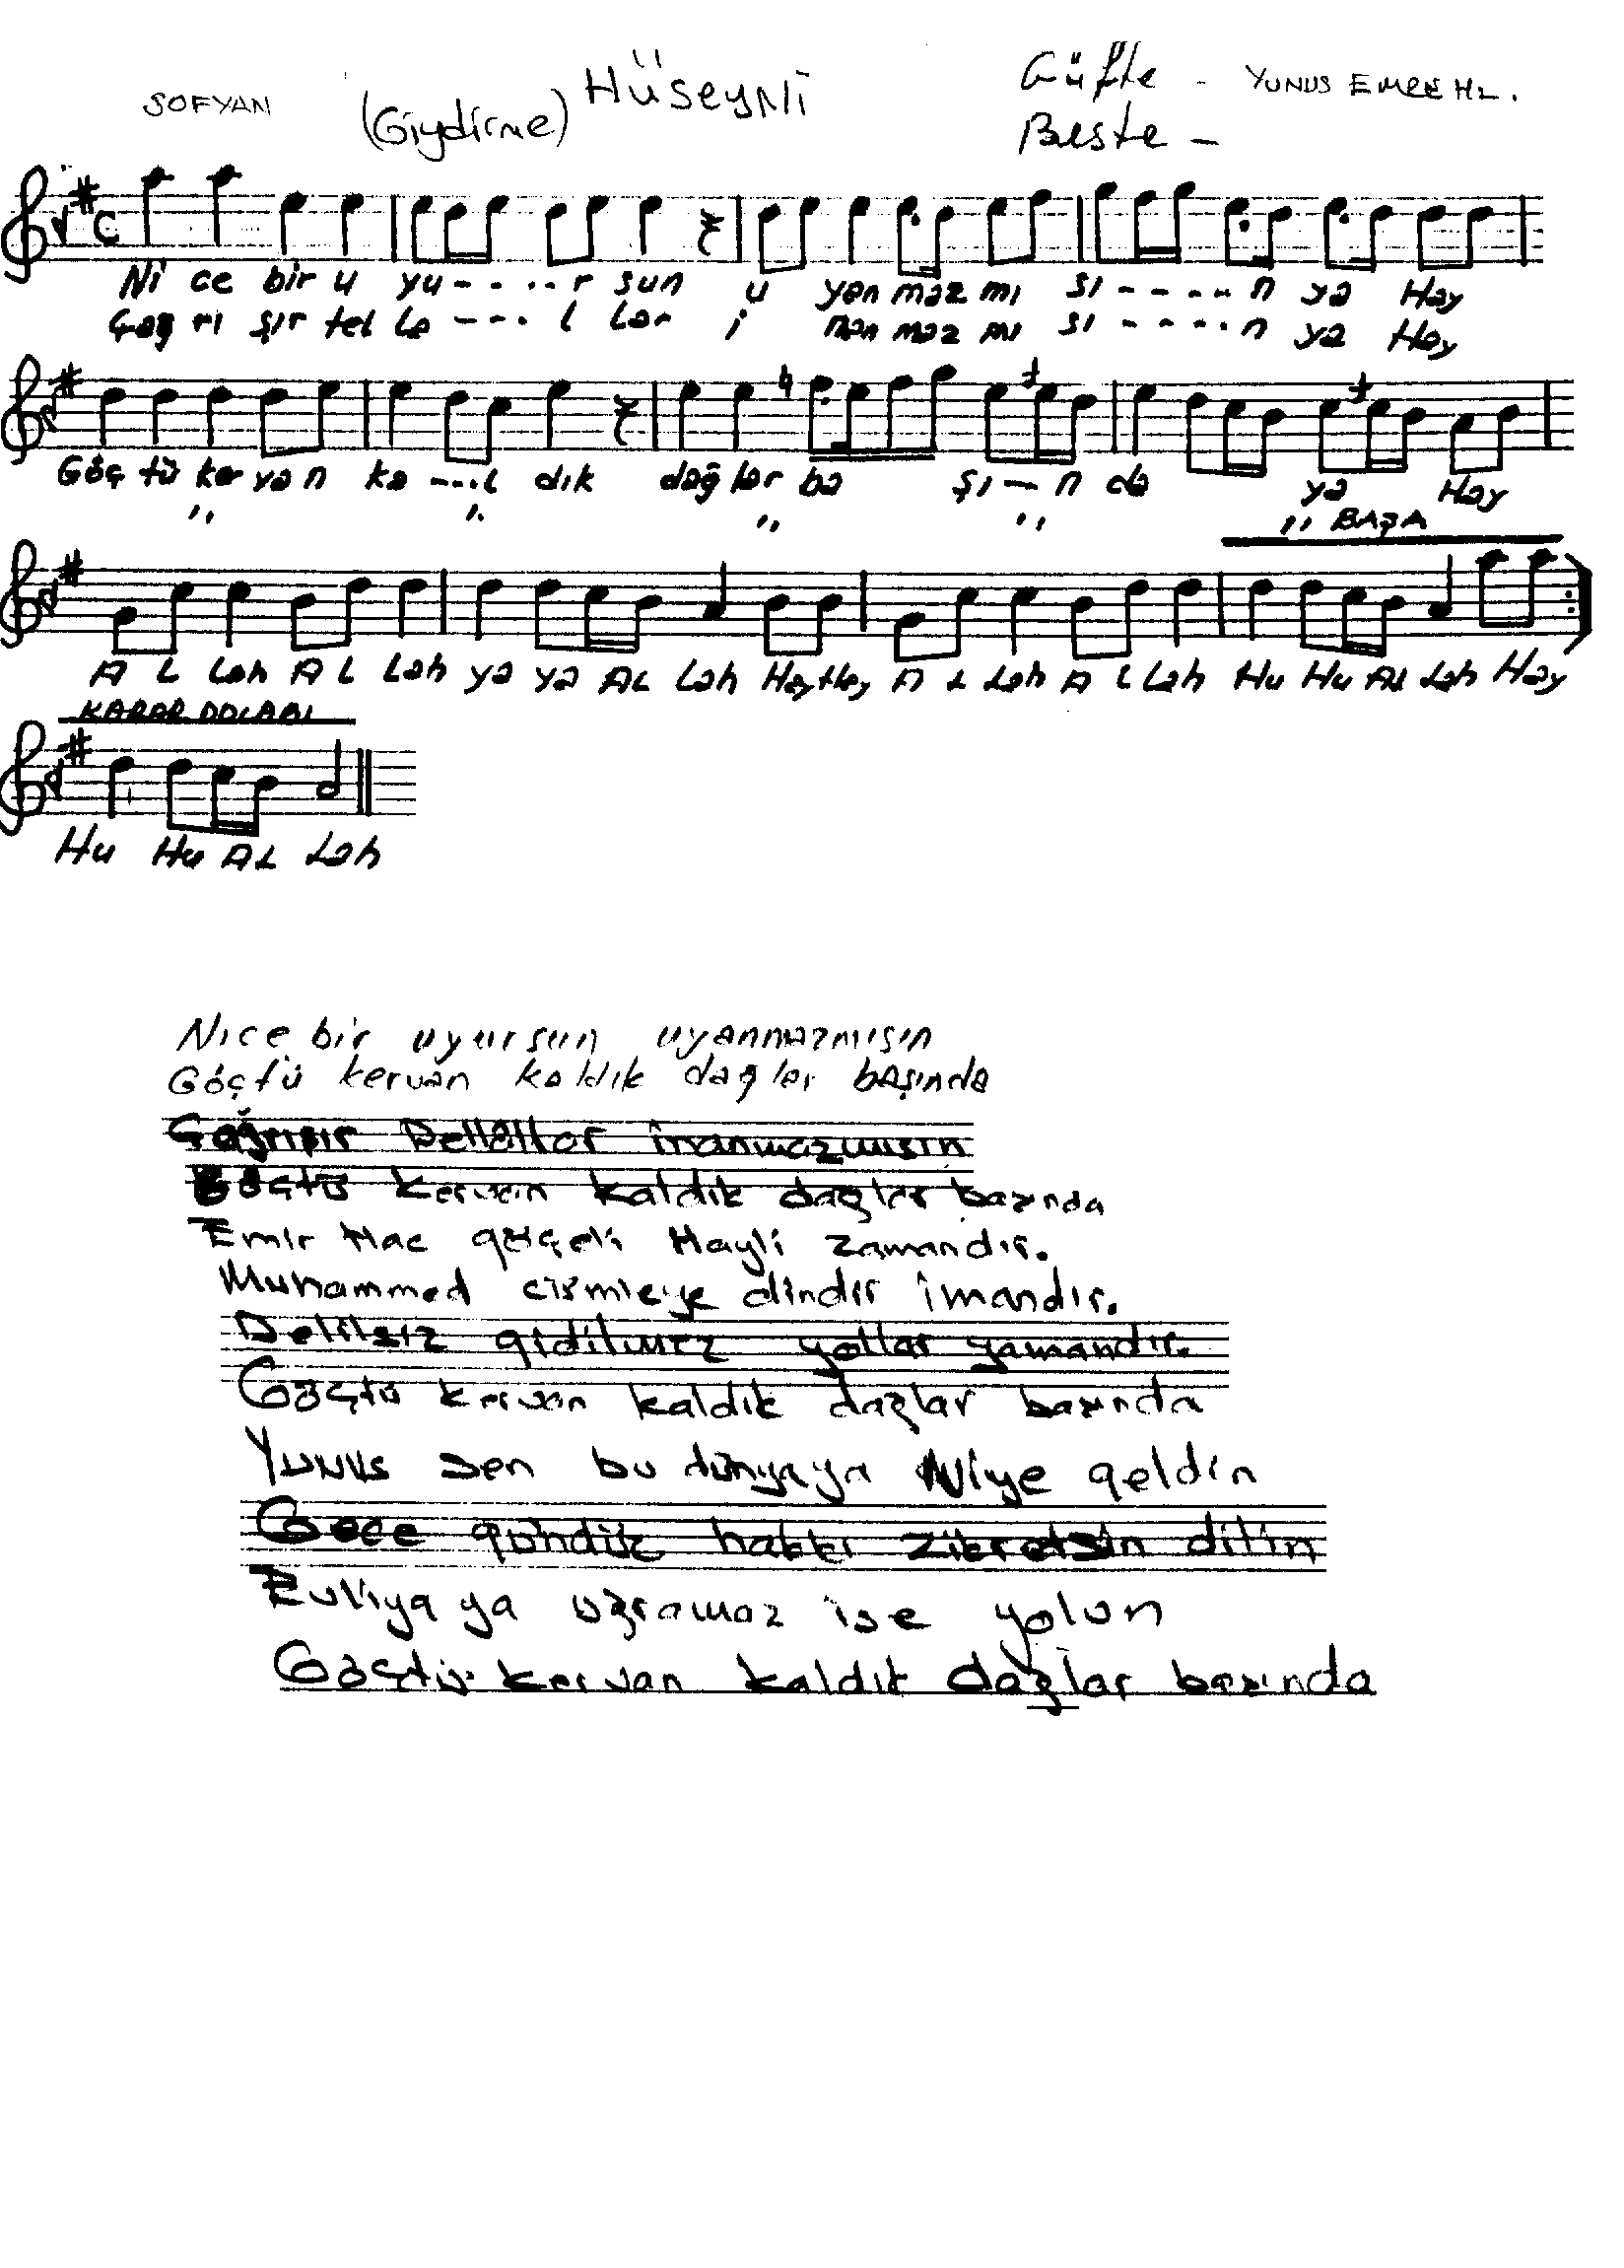 SOFYAN (Giydirme) HÜSEYNİ Güfte - YUNUS EMRE HZ.
Beste -
Ni ce bir u yu - - - - r sun u yan maz mı sı - - - - n ya Hay
Çağ rı şır tel la - - - l lar i nan maz mı sı - - - - n ya Hay
Göç tü ker va n ka - - - l dık dağ lar ba şı - n da ya Hay
" " " " " BAŞA
A L Lah A L Lah ya ya AL Lah Hay Hay A L Lah A L Lah Hu Hu AL Lah Hay
KARAR DOLABI
Hu Hu AL Lah
Nice bir uyursun uyanmazmısın
Göçtü kervan kaldık dağlar başında
Çağrışır Dellâllar inanmazmısın
Göçtü kervan kaldık dağlar başında
Emir Hac göçeli Hayli zamandır.
Muhammed cismleye dindir îmandır.
Delilsiz gidilmez yollar yamandır.
Göçtü kervan kaldık dağlar başında
Yunus sen bu dünyaya Niye geldin
Gece gündüz hakkı zikretsin dilin
Evliyaya uğramaz ise yolun
Göçtü kervan kaldık dağlar başında